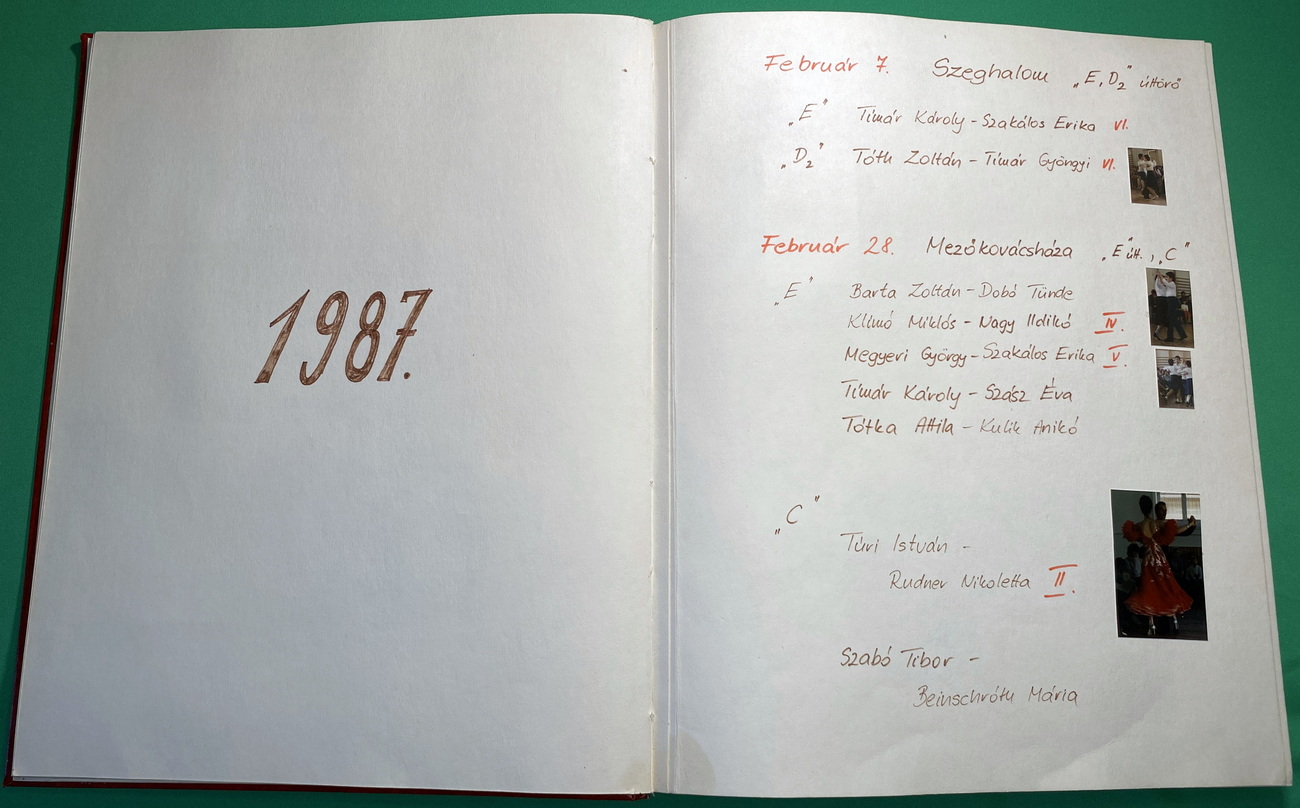 1987.
Február 7. Szeghalom „E, D2" úttörő
„E" Tímár Károly - Szakálos Erika VI.
„D2" Tóth Zoltán - Tímár Gyöngyi VI.
Február 28. Mezőkovácsháza „E" útt., „C"
„E" Barta Zoltán - Dobó Tünde
Klimó Miklós - Nagy Ildikó IV.
Megyeri György - Szakálos Erika V.
Tímár Károly - Szász Éva
Tótka Attila - Kulik Anikó
„C"
Túri István -
Rudner Nikoletta II.
Szabó Tibor -
Beinschróth Mária